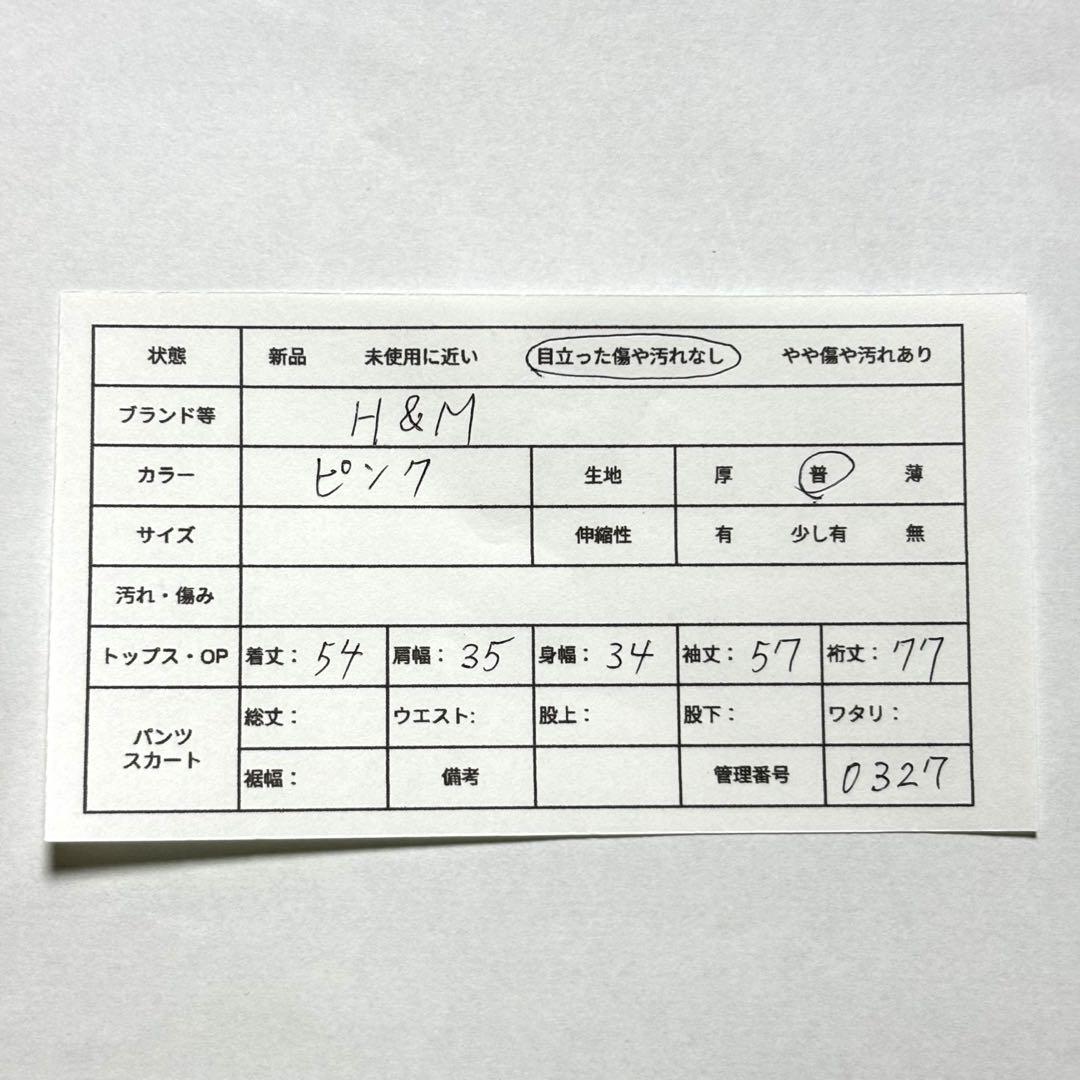 状態 新品 未使用に近い 目立った傷や汚れなし やや傷や汚れあり
ブランド等 H&M
カラー ピンク 生地 厚 普 薄
サイズ 伸縮性 有 少し有 無
汚れ・傷み
トップス・OP 着丈: 54 肩幅: 35 身幅: 34 袖丈: 57 裄丈: 77
パンツ スカート
総丈: ウエスト: 股上: 股下: ワタリ:
裾幅: 備考 管理番号 0327